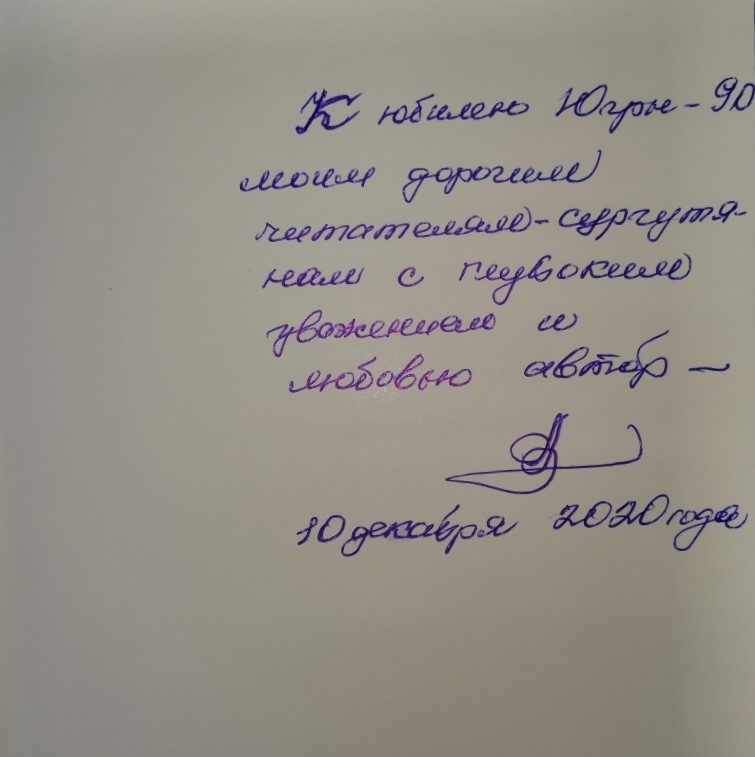 К юбилею Югры - 90
моим дорогим
читателям - сургутя-
нам с глубоким
уважением и
любовью автор —
10 декабря 2020 года